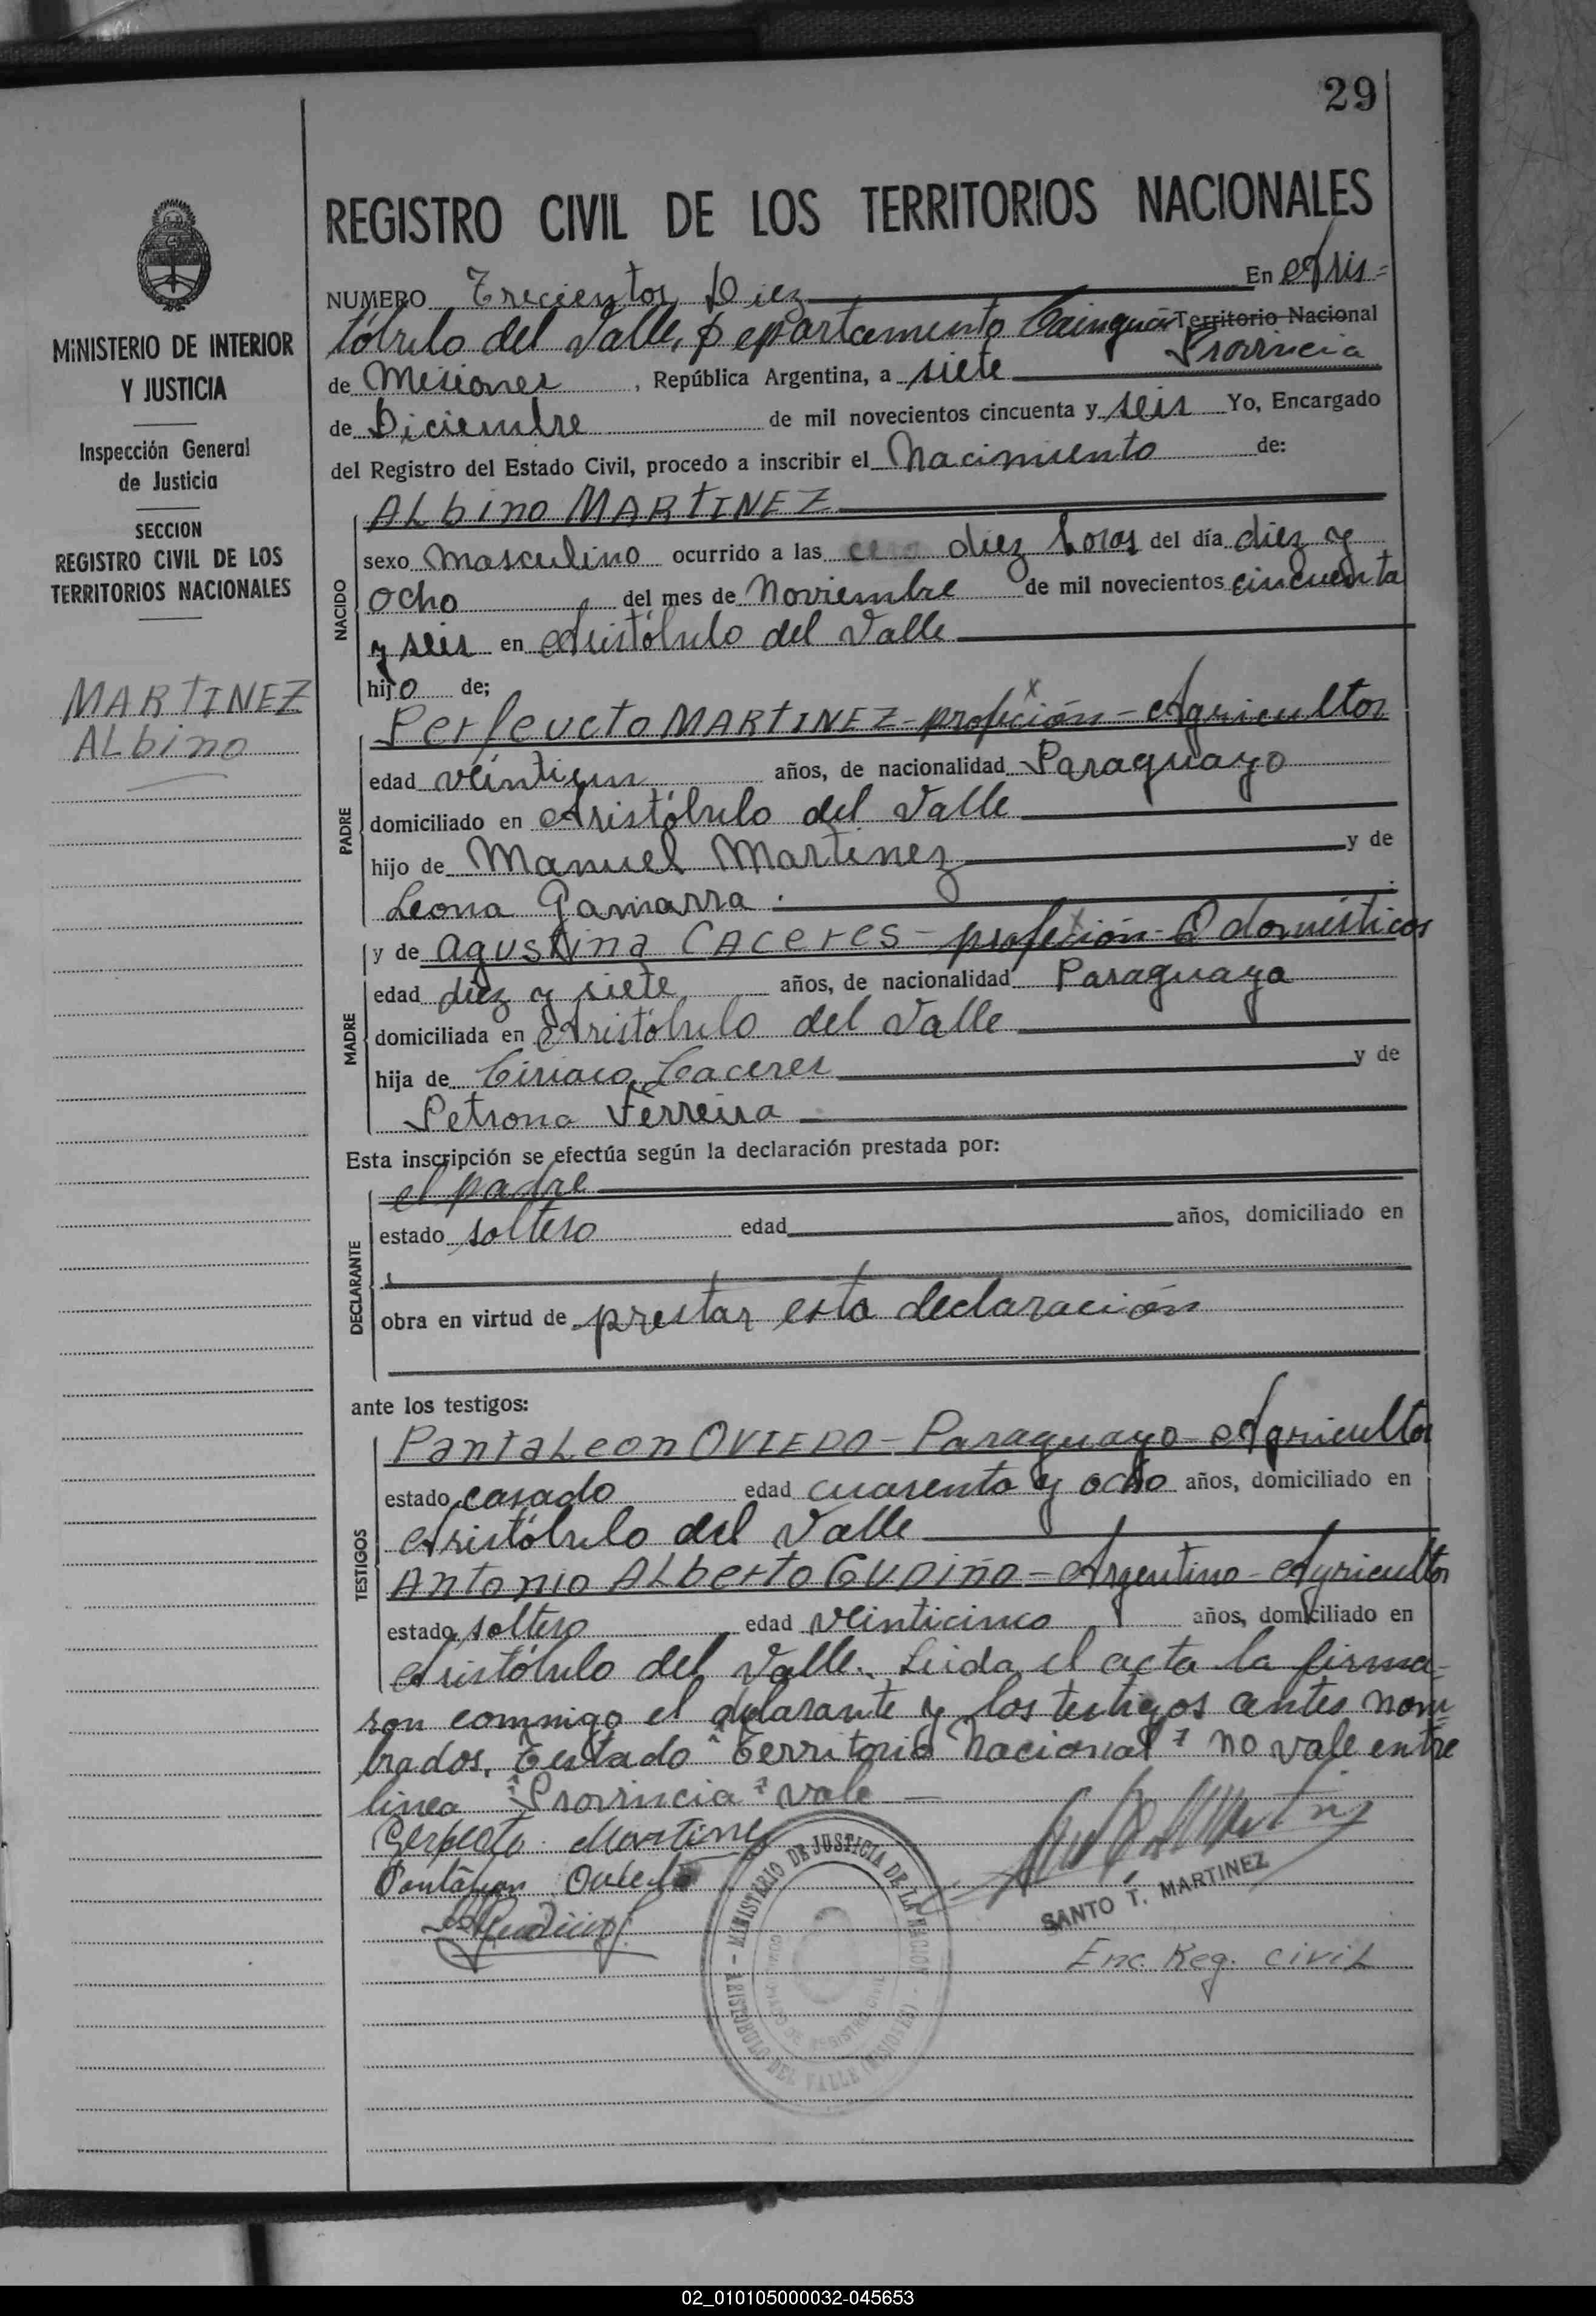 29
REGISTRO CIVIL DE LOS TERRITORIOS NACIONALES
MINISTERIO DE INTERIOR
Y JUSTICIA
Inspección General
de Justicia
SECCION
REGISTRO CIVIL DE LOS
TERRITORIOS NACIONALES
MARTINEZ
ALbino
NUMERO Trecientos Diez En Aris=
tóbulo del Valle, Departamento Cainguás Territorio Nacional
Provincia
de Misiones, República Argentina, a siete
de Diciembre de mil novecientos cincuenta y seis Yo, Encargado
del Registro del Estado Civil, procedo a inscribir el Nacimiento de:
NACIDO
ALbino MARTINEZ
sexo masculino ocurrido a las diez horas del día diez y
ocho del mes de Noviembre de mil novecientos cincuenta
y seis en Aristóbulo del Valle
hijo de;
PADRE
Perfeucto MARTINEZ - profeción - Agricultor
edad veintiun años, de nacionalidad Paraguayo
domiciliado en Aristóbulo del Valle
hijo de Manuel Martinez y de
Leona Gamarra.
MADRE
y de agustina CACeres - profeción - Q domésticos
edad diez y siete años, de nacionalidad Paraguaya
domiciliada en Aristóbulo del Valle
hija de Ciriaco Caceres y de
Petrona Ferreira
Esta inscripción se efectúa según la declaración prestada por:
DECLARANTE
el padre
estado soltero edad años, domiciliado en
obra en virtud de prestar esta declaración
ante los testigos:
TESTIGOS
PantaLeon OVIEDO - Paraguayo - Agricultor
estado casado edad cuarenta y ocho años, domiciliado en
Aristóbulo del Valle
Antonio ALberto GUDIÑO - Argentino - Agricultor
estado soltero edad veinticinco años, domiciliado en
Aristóbulo del Valle. Leida el acta la firma=
ron conmigo el delarante y los testigos antes nom=
brados. Testado "Territorio Nacional" no vale entre
linea "Provincia" vale
Martinez
MINISTERIO DE JUSTICIA DE LA NACION - ARISTOBULO DEL VALLE (MISIONES)
SANTO T. MARTINEZ
Enc. Reg. civiL
02_010105000032-045653